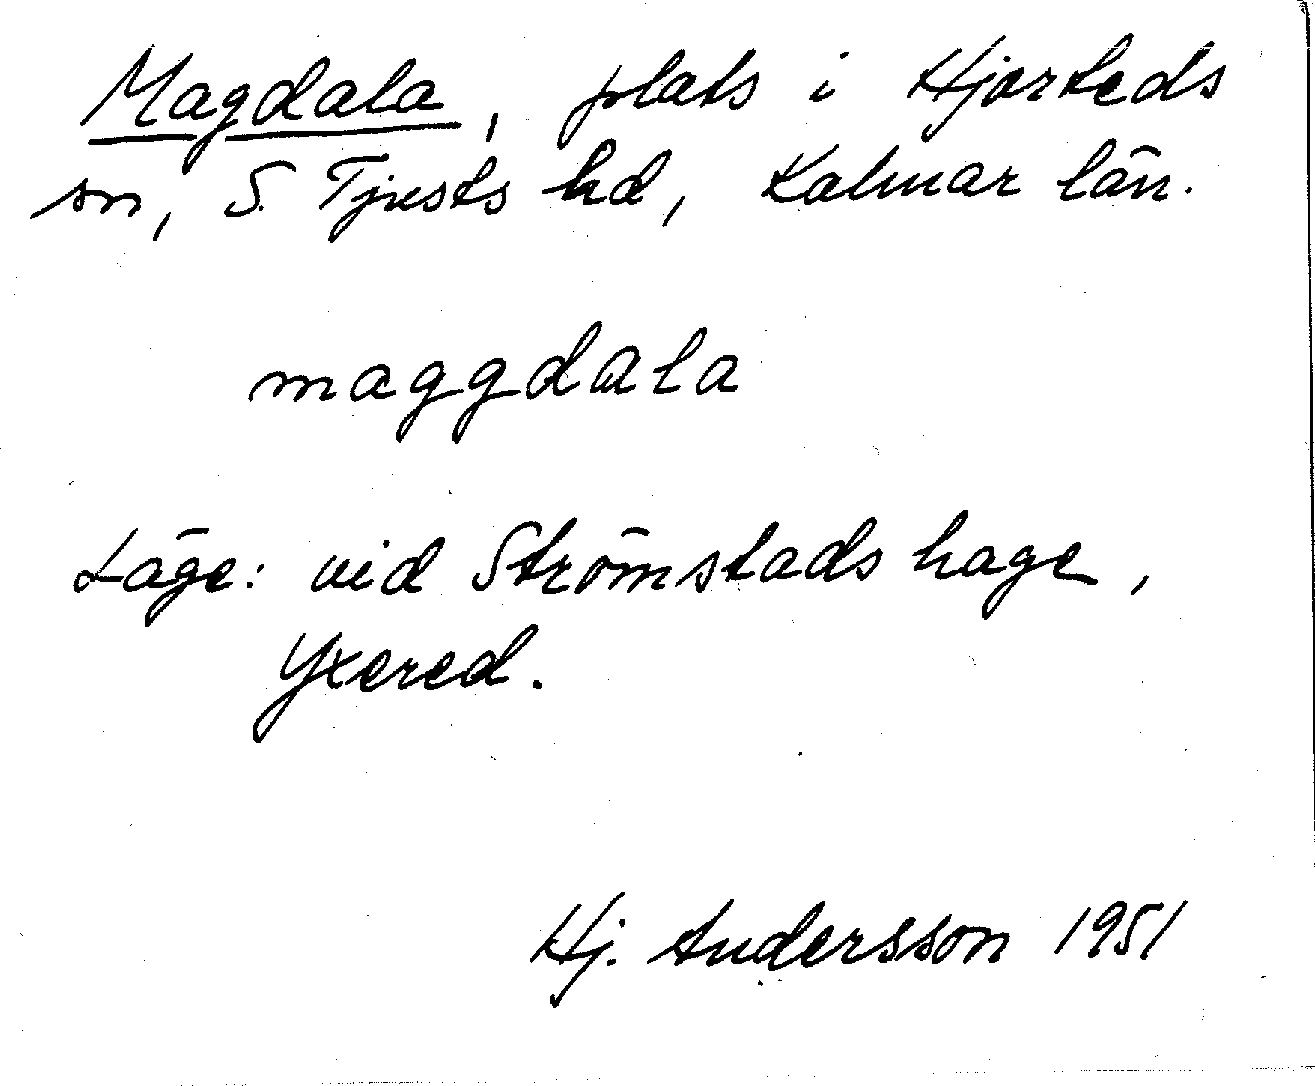 Magdala, plats i Hjorteds
sn, S. Tjusts hd, Kalmar län.
maggdala
Läge: vid Strömstads hage,
Yxered.
Hj. Andersson 1951